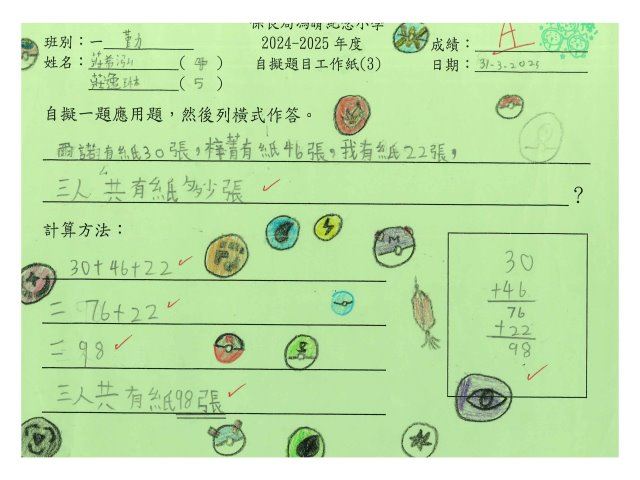 保良局馮晴紀念小學
班別：一 勤
2024-2025 年度
成績： A
姓名： 莊
自擬題目工作紙(3)
日期： 31-3-2025
莊 ( 5 )
自擬一題應用題，然後列橫式作答。
有紙30張，梓菁有紙46張，我有紙22張，
三人共有紙多少張 ？
計算方法：
30+46+22
= 76+22
= 98
三人共有紙98張
30
+46
76
+22
98
M